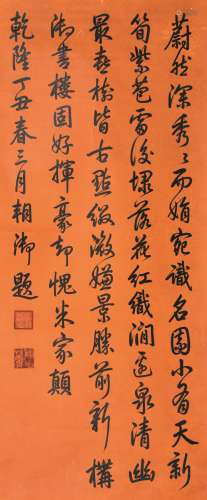 蔚然深秀〻而娟宛識名園小有天新
筍紫苞雷後埭落花紅織澗邊泉清幽
最喜樹皆古點綴微嫌景勝前新構
御書樓固好揮豪却愧米家顛
乾隆丁丑春三月朝御題